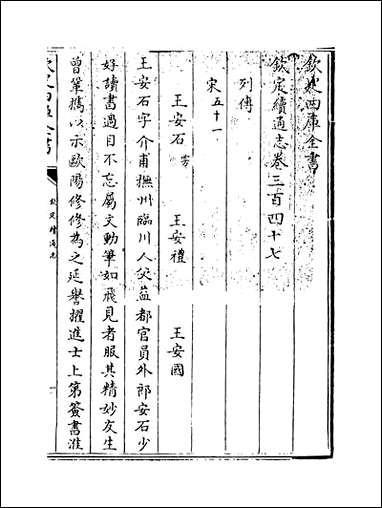 欽定四庫全書
欽定續通志卷三百四十七
列傳
宋五十一
王安石 雱 王安禮 王安國
王安石字介甫撫州臨川人父益都官員外郎安石少
好讀書過目不忘屬文動筆如飛見者服其精妙友生
曾鞏攜以示歐陽修修為之延譽擢進士上第簽書淮
欽定四庫全書
欽定續通志